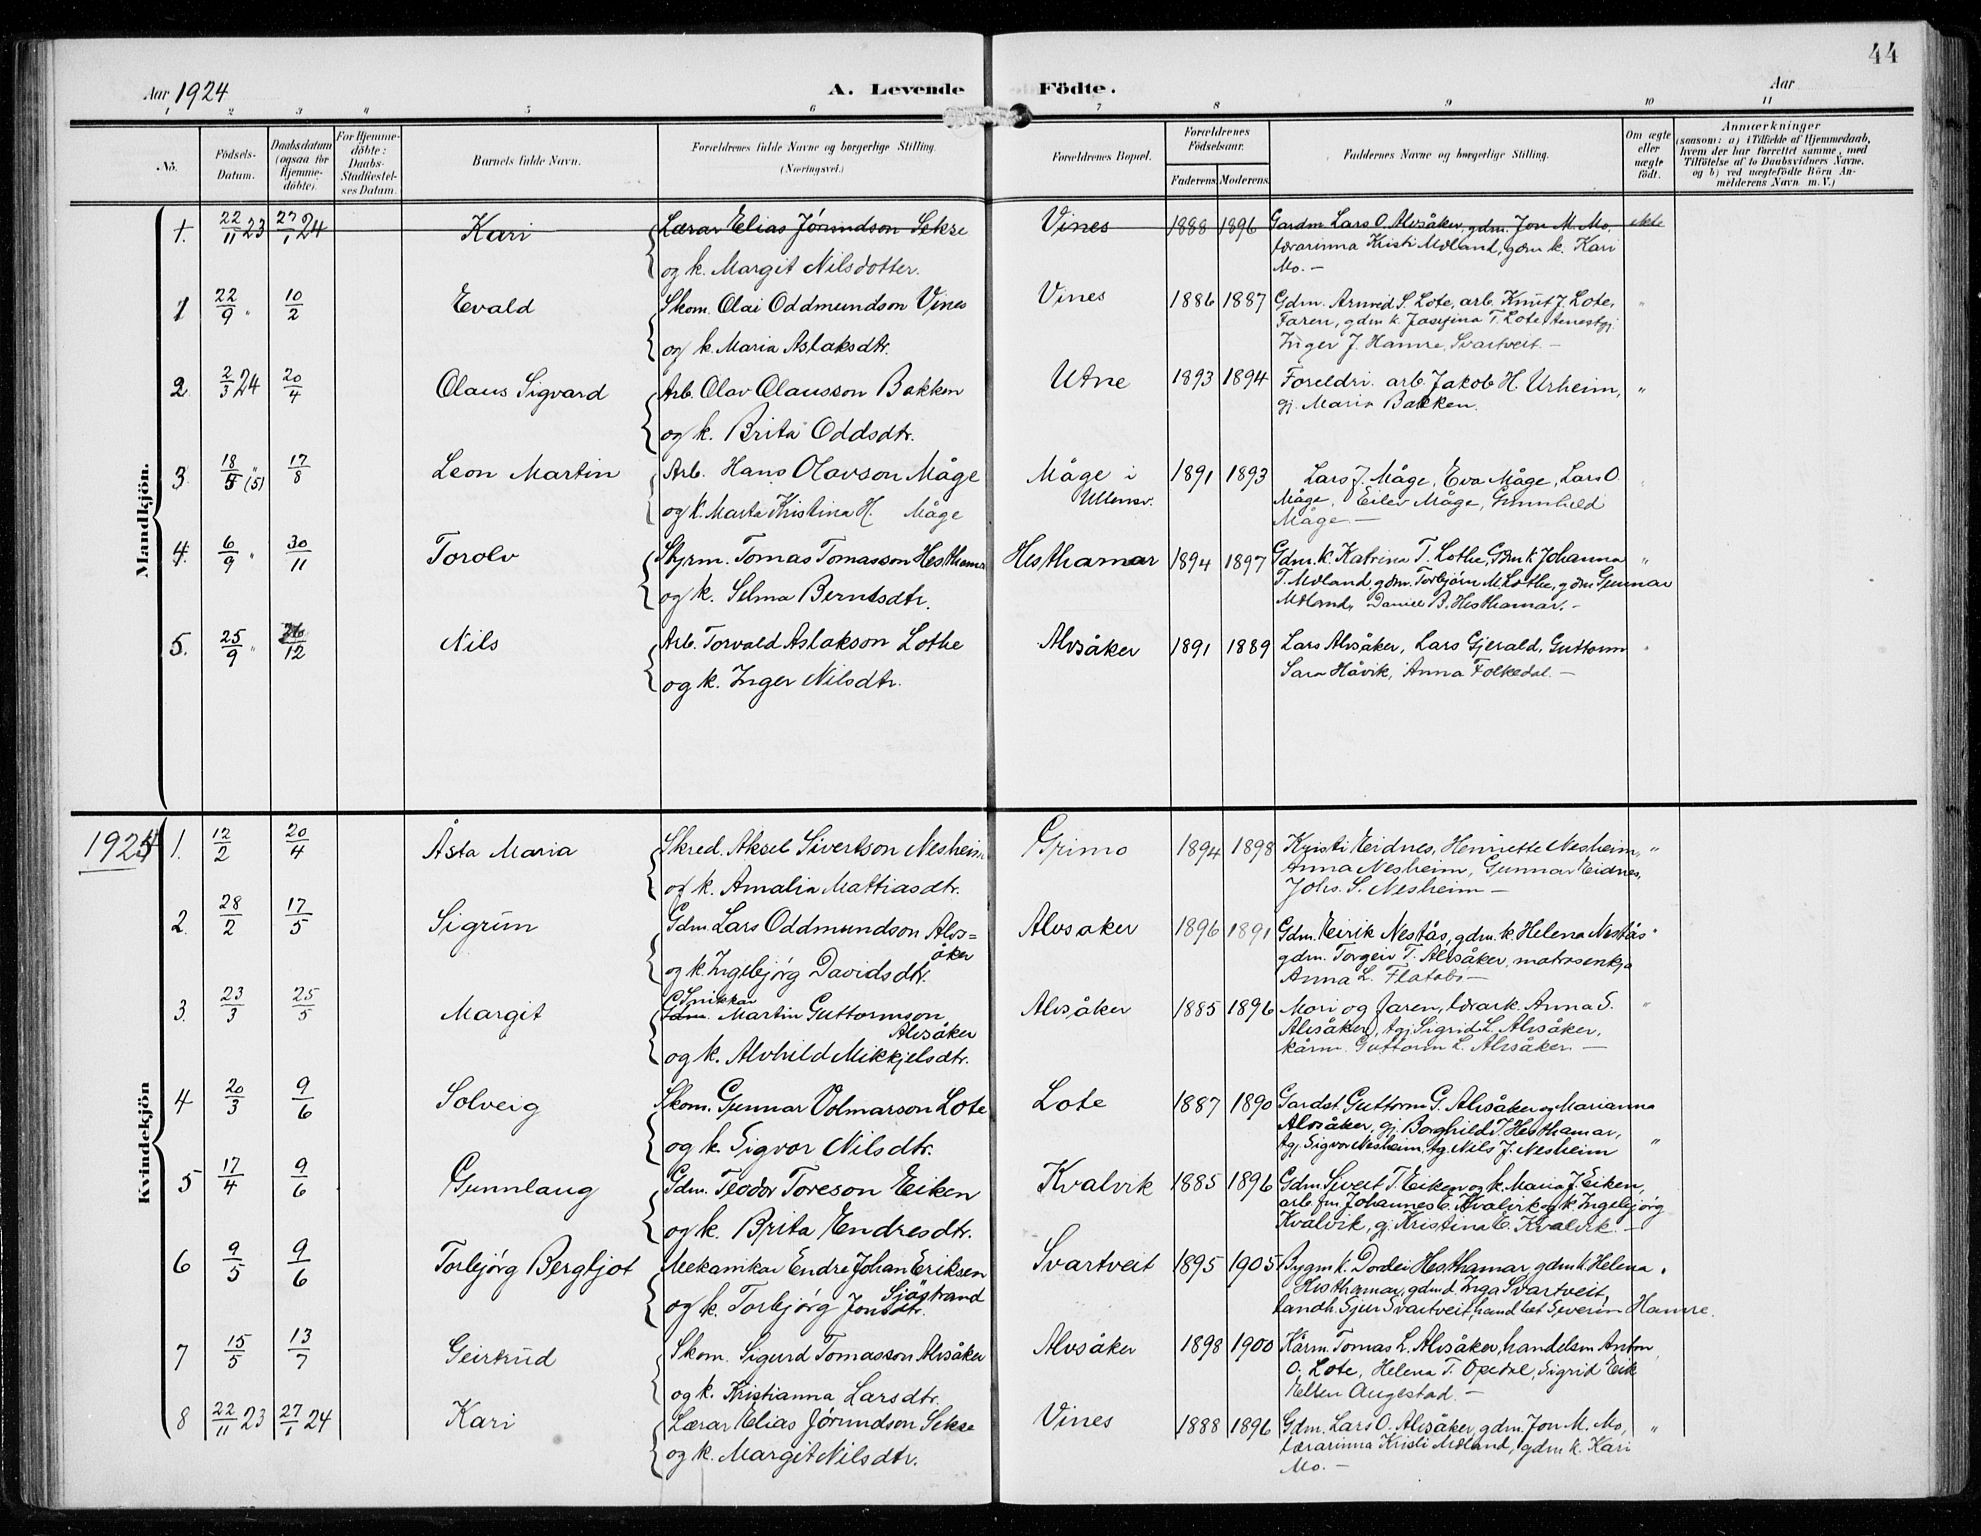 44
Aar 1924
A. Levende Födte.
Aar
1 2 3 4 5 6 7 8 9 10 11
No.
Födsels-Datum.
Daabsdatum (ogsaa for Hjemme-döbte).
For Hjemme-döbte: Daabs-Stadfæstel-ses Datum.
Barnets fulde Navn.
Forældrenes fulde Navne og borgerlige Stilling. (Næringsvei.)
Forældrenes Bopæl.
Forældrenes Födselsaar.
Faderens. Moderens.
Faddernes Navne og borgerlige Stilling.
Om ægte eller uægte födt.
Anmærkninger
(saasom: a) i Tilfælde af Hjemmedaab, hvem der har forrettet samme, med Tilföielse af to Daabsvidners Navne, og b) ved uægtefödte Börn An-melderens Navn m. V.)
Mandkjön.
1. 22/11 23 27/1 24 Kari Lærar Elias Jórundson Sekse Vines 1888 1896 Gardm Lars O. Alvsåker, gdm. Jon M. Mo, ekte
og k. Margit Nilsdotter. lærarinna Kristi Midland, gdm k. Kari
Mo. —
1 22/9 " 10/2 Evald Skom. Olai Oddmundson Vines Vines 1886 1887 Gdm. Arnvid S. Lote, arb. Knut J. Lote, "
og k. Maria Aslaksdtr. Faren, gdm k. Josefina T. Lote, tenestgj.
Inger J. Hamre, Svartveit. —
2 2/3 24 20/4 Olaus Sigvard Arb. Olav Olausson Bakken Utne 1893 1894 Foreldri. arb. Jakob H. Urheim, "
og k. Brita Oddsdtr. gj. Maria Bakken.
3 18/5 " (5) 17/8 Leon Martin Arb. Hans Olavson Måge Måge i 1891 1893 Lars J. Måge, Eva Måge, Lars O. "
og k. Marta Kristina H. Måge Ullensv. Måge, Eilev Måge, Gunnhild
Måge. —
4. 6/9 " 30/11 Torolv Styrm. Tomas Tomasson Hesthamar Hesthamar 1894 1897 Gdm. k. Katrina T. Lothe, Gdm k Johanna "
og k. Selma Berntsdtr. T. Midland, gdm. Torbjörn M. Lothe, gdm Gunnar
Midland, Daniel B. Hesthamar. —
5. 25/9 " 26/12 Nils Arb. Torvald Aslakson Lothe Alvsåker 1891 1889 Lars Alvsåker, Lars Gjerald, Guttorm "
og k. Inger Nilsdtr. Sara Håvik, Anna Folkedal. —
1924
Kvindekjön
1. 12/2 20/4 Åsta Maria Skred. Aksel Sivertson Nesheim Grimo 1894 1898 Kristi Eidnes, Henriette Nesheim, "
og k. Amalia Mattiasdtr. Anna Nesheim, Gunnar Eidnes,
Johs. S. Nesheim —
2. 28/2 17/5 Sigrun Gdm. Lars Oddmundson Alvs=åker Alvsaker 1896 1891 Gdm. Eirik Nestås, gdm. k. Helena Nestås "
og k. Ingebjørg Davidsdtr. gdm. Torgeir T. Alvsåker, matrosenkja
Anna L. Flatabø —
3. 23/3 25/5 Margit Snikkar Gdm. Martin Guttormson Alvsåker Alvsåker 1885 1896 Mori og faren, lærark. Anna S. "
og k. Alvhild Mikkjelsdtr. Alvsåker, tgj. Sigrid L. Alvsåker,
kårm. Guttorm L. Alvsåker. —
4 20/3 9/6 Solveig Skom. Gunnar Volmarson Lote Lote 1887 1890 Gardst. Guttorm G. Alvsåker og Marianna
og k. Sigvor Nilsdtr. Alvsåker, gj. Borghild T. Hesthamar,
tgj. Sigvor Nesheim. tg. Nils J. Nesheim "
5 17/4 9/6 Gunnlaug Gdm. Teodor Toreson Eiken Kvalvik 1885 1896 Gdm. Sivert T. Eiken og k. Maria J. Eiken,
og k. Brita Endresdtr. arb. fm. Johannes E. Kvalvik og k. Ingebjörg
Kvalvik, gj. Kristina E. Kvalvik. —
6 9/5 9/6 Torbjørg Bergljot Mekanikar Endre Johan Eriksen Sjöstrand Svartveit 1895 1905 Bygm k. Dordei Hesthamar, gdm. k. Helena "
og k. Torbjørg Jonsdtr. Hesthamar, gdm d. Inga Svartveit,
landh. Sjur Svartveit, handlæt Severin Hamre.
7 15/5 13/7 Geirtrud Skom. Sigurd Tomasson Alvsåker Alvsåker 1898 1900 Kårm. Tomas L. Alvsåker, handelsm Anton
og k. Kristianna Larsdtr. O. Lote, Helena T. Opedal, Sigrid Eik
Ellen Augestad —
8 22/11 23 27/1 24 Kari Lærar Elias Jórundson Sekse Vines 1888 1896 Gdm. Lars O. Alvsåker, gdm. Jon M. Mo, "
og k. Margit Nilsdtr. lærarinna Kristi Midland, gdm k. Kari
Mo. —